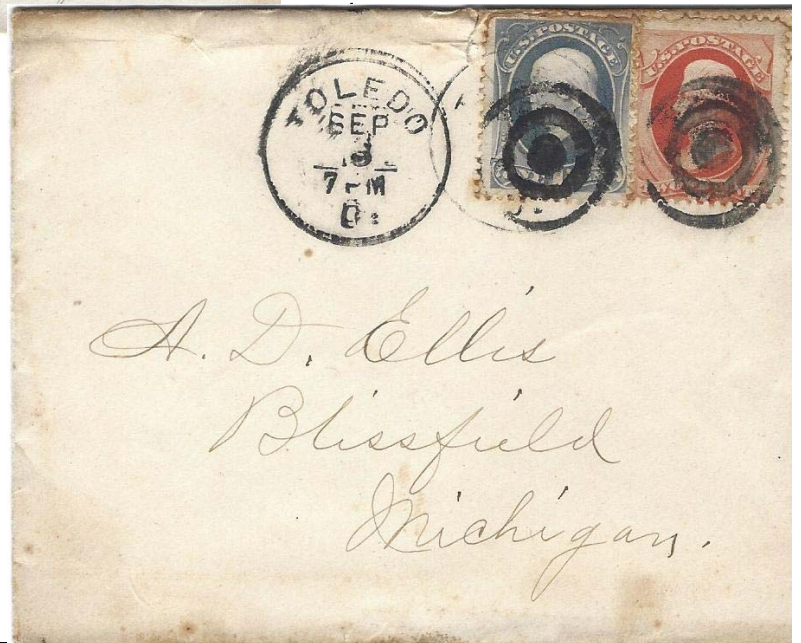 TOLEDO
SEP
7 PM
O.
U.S. POSTAGE
U.S. POSTAGE
A. D. Ellis
Blissfield
Michigan.